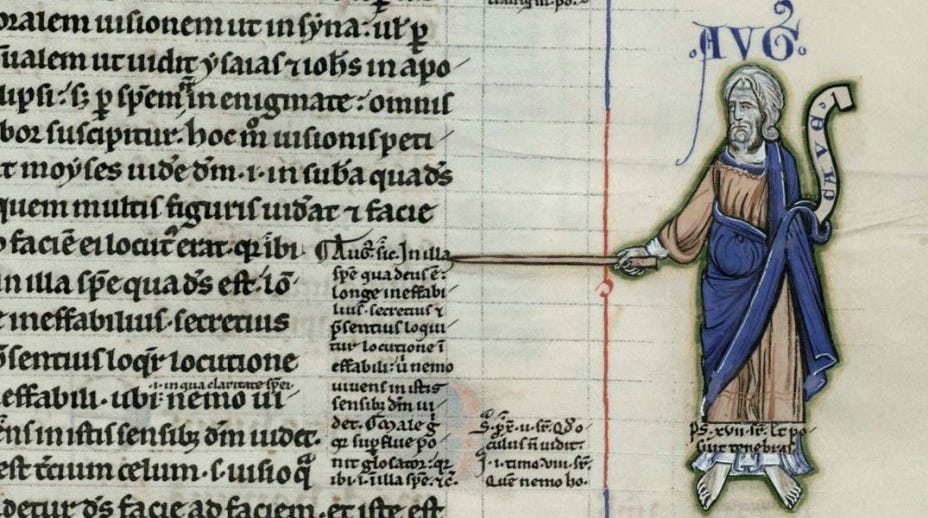 oralem uisionem ut in syna: ul̓ ꝑ
ut uidit ysaias ⁊ ioh̓s in apo
lipsi: sꝫ ꝑ sp̄em ⁊ in enigmate: omnis
bor suscipitur. hoc m̊ uisionis peti
t moyses uid̓e d̄m. .i. in sub̄a qua d̓s
quem multis figuris uid̓at ⁊ facie
faciē ei locut̓ erat. qr ibi
in illa sp̄e qua d̓s est. lō
e ineffabilius. secretius
p̄sentius loqr̓ locutione
.i. in qua claritate sp̄ei
effabili. ubi nemo ui
ens in istis sensibꝫ d̄m uidet.
est t̓cium celum .s. uisio q̄
detur d̓s facie ad faciem. et iste est
Aug̓. sic. In illa
sp̄e qua deus ē:
longe ineffabi
lius. secretius ⁊
p̄sentius loqui
tur locutione ī
effabili: u̓ nemo
uiuens in istis
sensibꝫ d̄m ui
det. Male g̊
qr supflue po
nit glosator: qr
ibi .i. illa sp̄e. ⁊c̓.
culus n̄ uidit.
I. i. timo. VIII.
Quē nemo ho.
AVG̓.
CAVE.
ps̄. XVII.
suit tenebras.